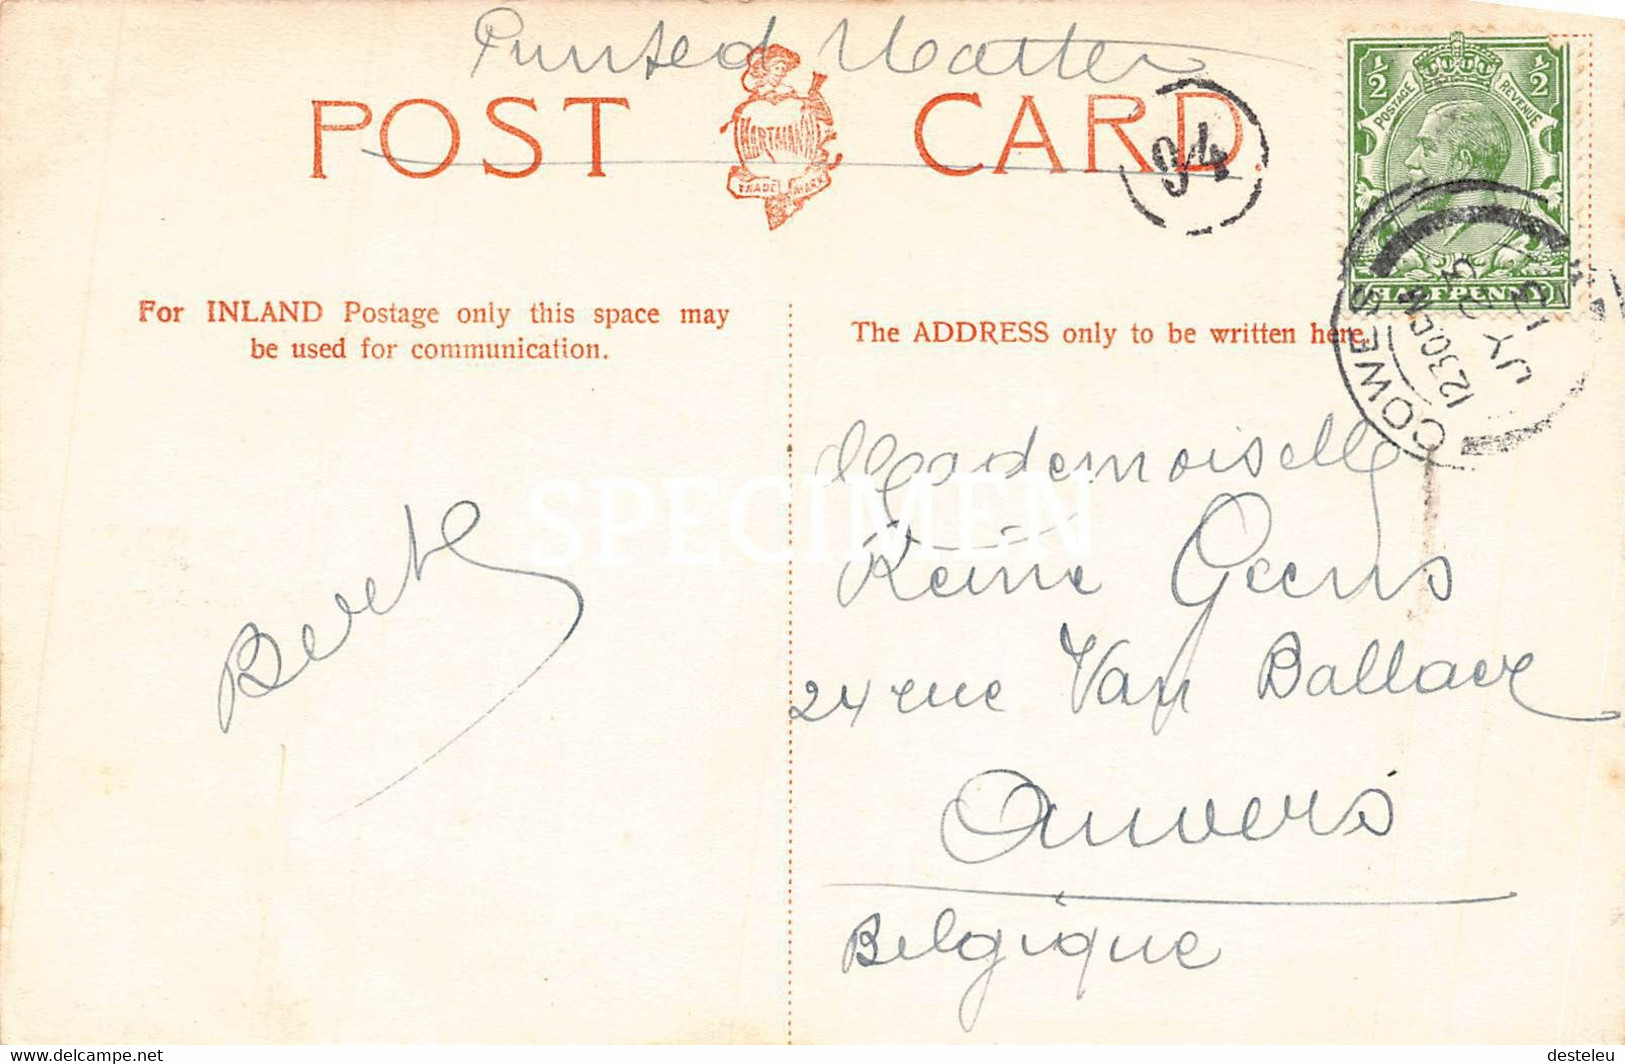 Printed Matter
POST CARD
HARTMANN
TRADE MARK
94
½ ½
POSTAGE REVENUE
HALFPENNY
COWES
1230
JY 13
For INLAND Postage only this space may
be used for communication.
The ADDRESS only to be written here.
SPECIMEN
Berthe
Mademoiselle
Reine Geens
24 rue Van Ballaer
Anvers
Belgique
www.delcampe.net
desteleu